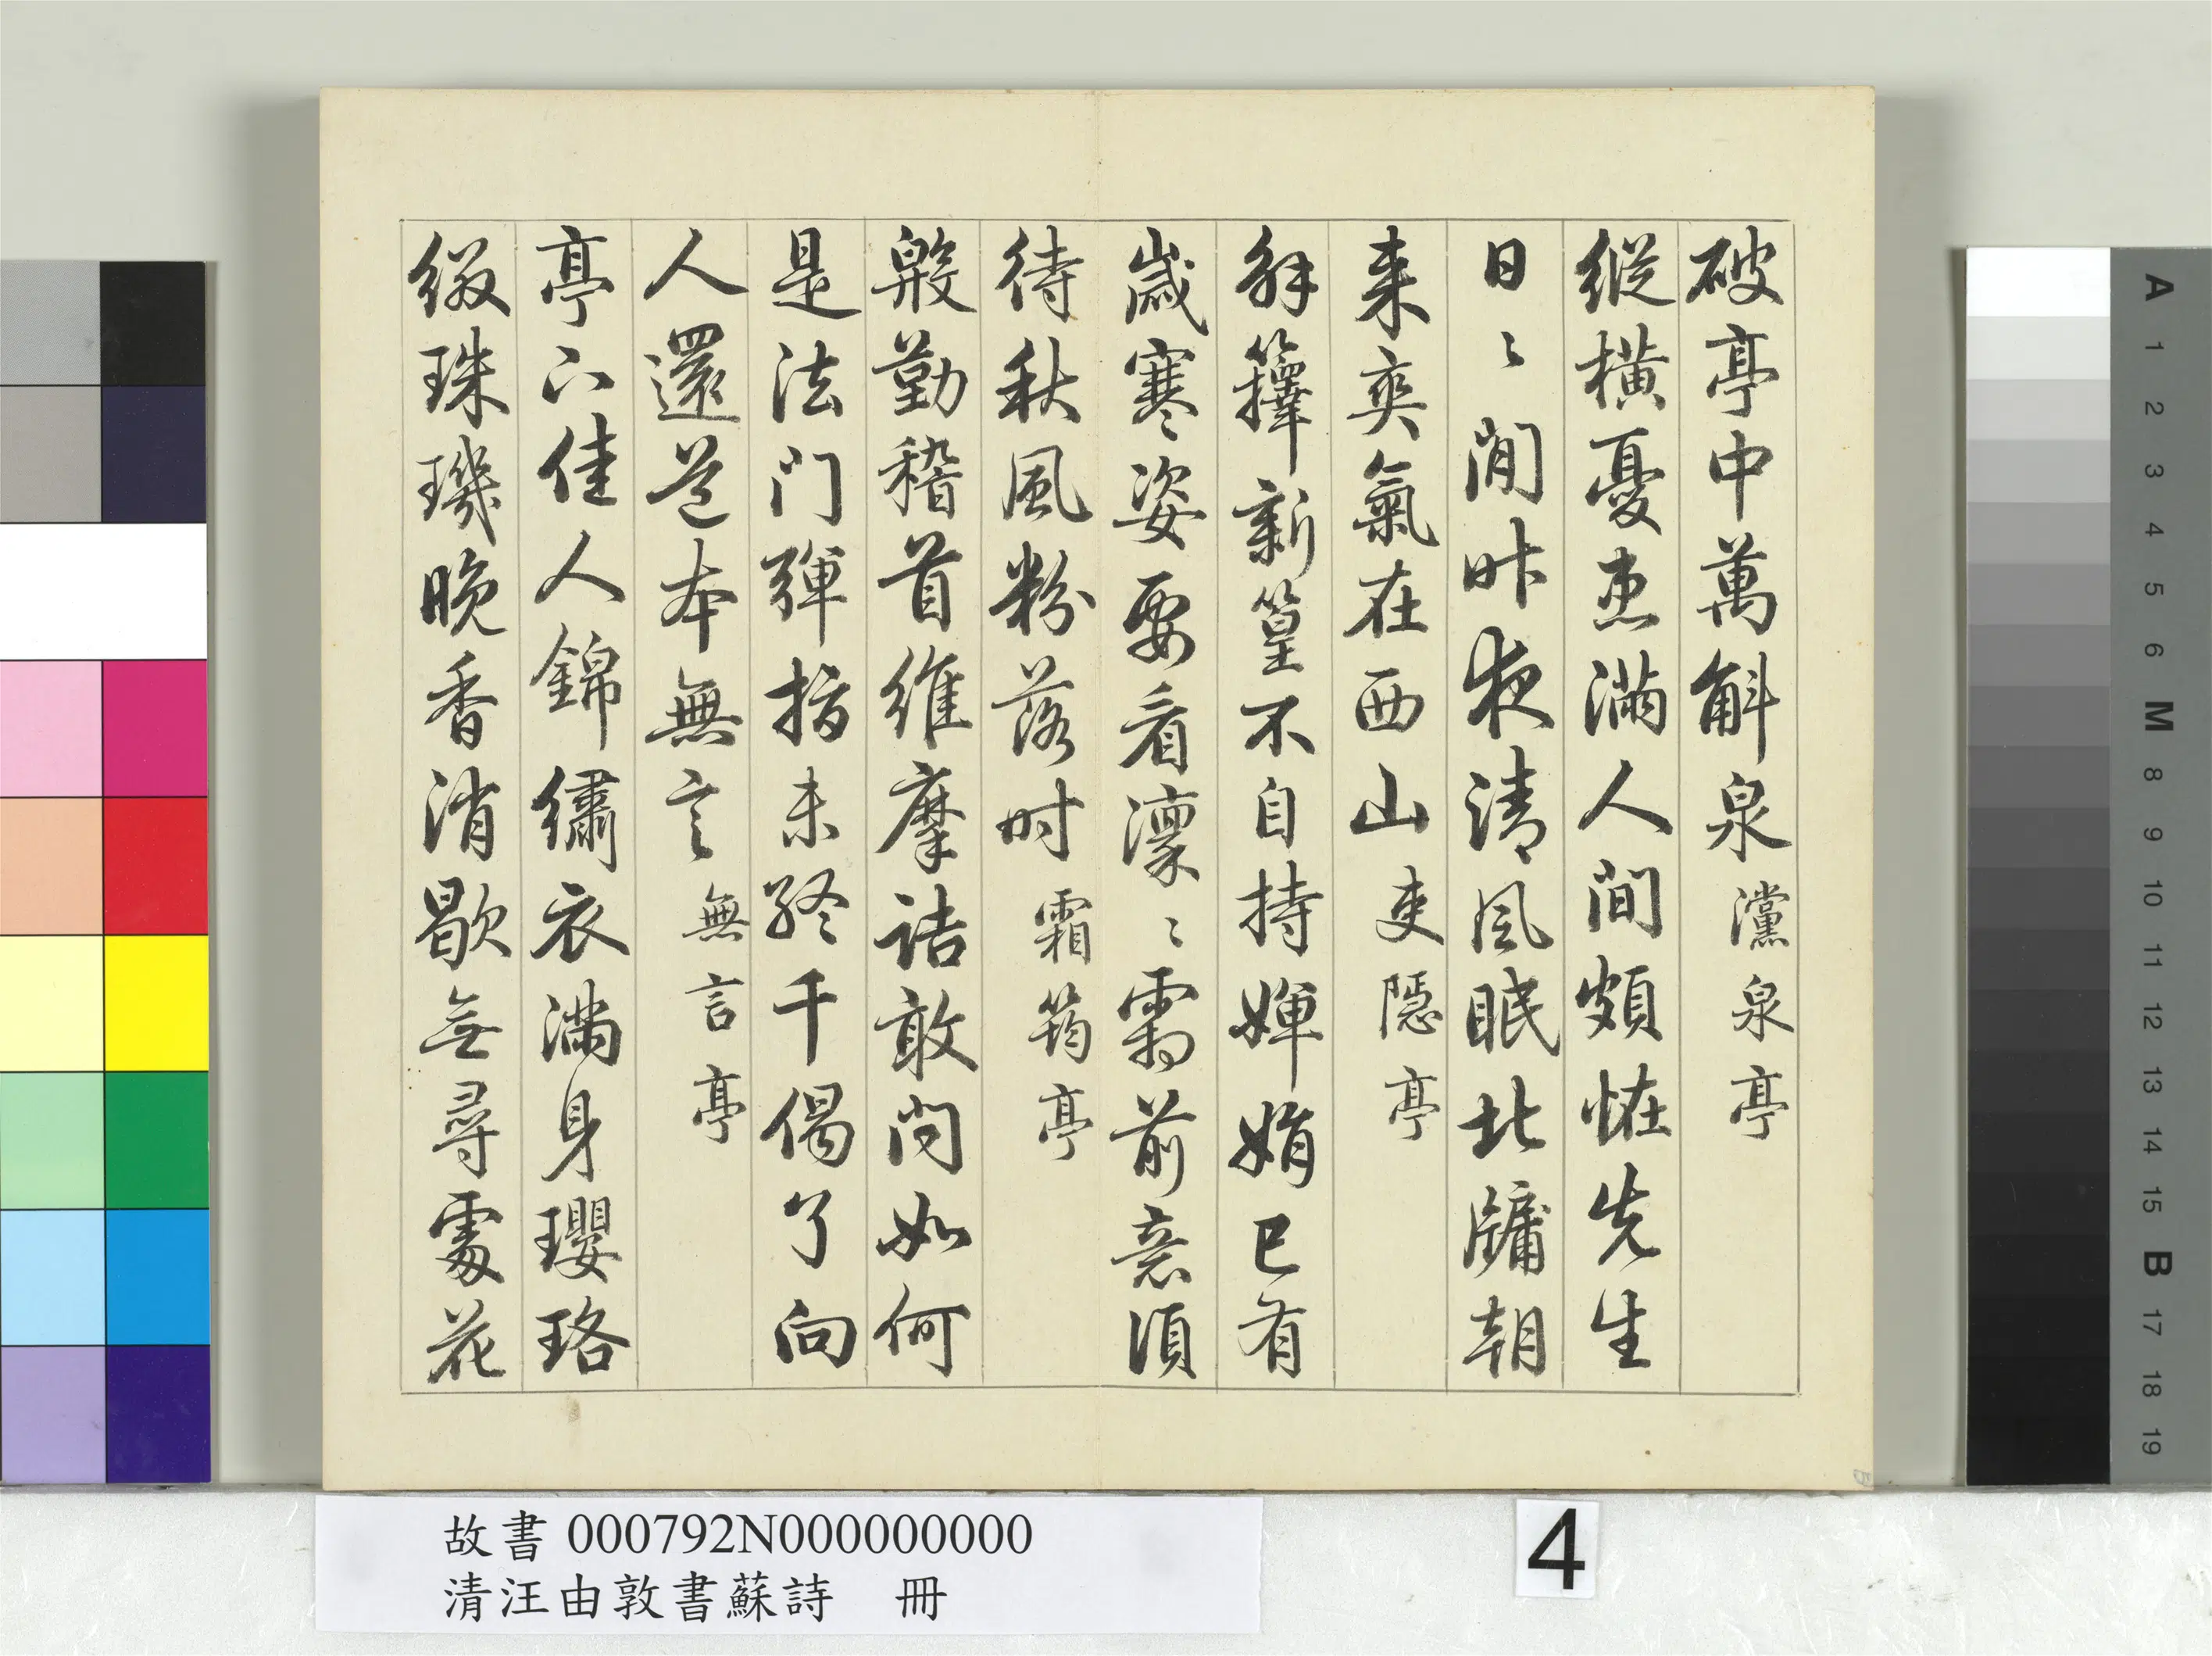 破亭中萬斛泉 灙泉亭
縱橫憂患滿人間頗怪先生
日〻閒昨夜清風眠北牖朝
來爽氣在西山 吏隱亭
解籜新篁不自持嬋娟已有
歲寒姿要看凜〻霜前意須
待秋風粉落时 霜筠亭
殷勤稽首維摩詰敢问如何
是法门彈指未終千偈了向
人還道本無言 無言亭
亭下佳人錦繡衣滿身瓔珞
綴珠璣晚香消歇無尋處花
故書000792N000000000
清汪由敦書蘇詩 冊
4
A
1
2
3
4
5
6
M
8
9
10
11
12
13
14
15
B
17
18
19